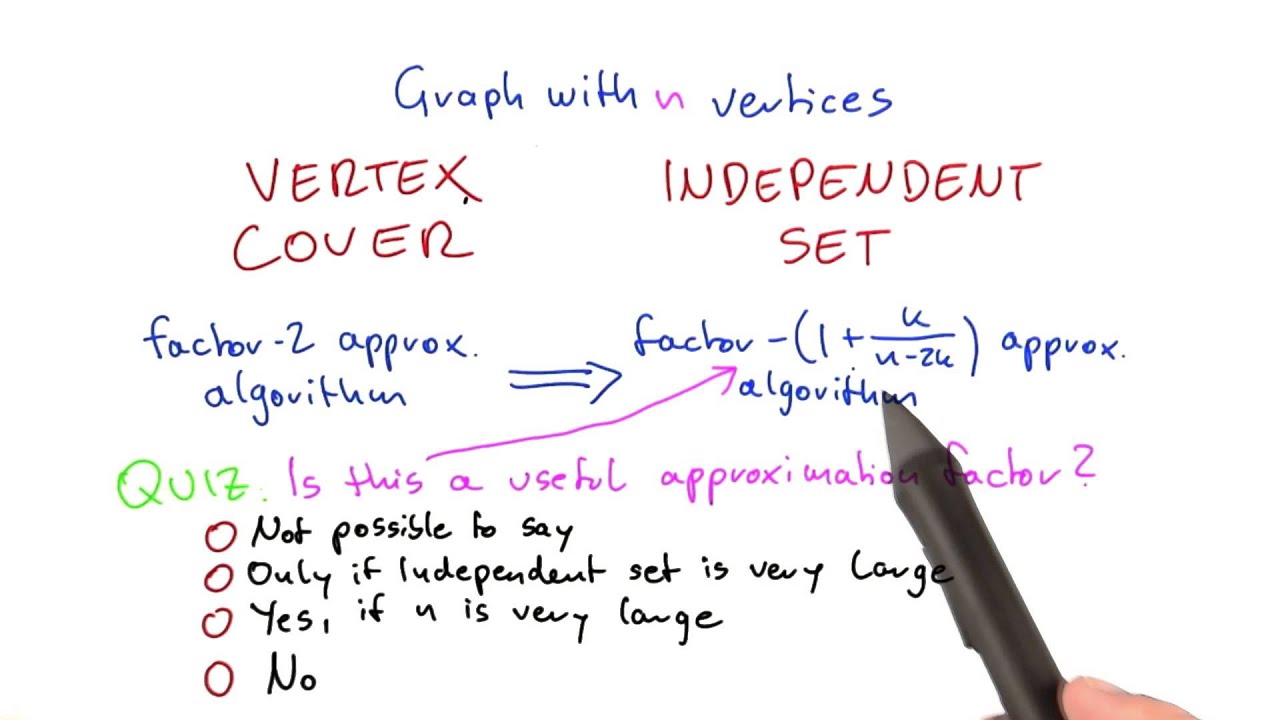 Graph with n vertices
VERTEX COVER
INDEPENDENT SET
factor-2 approx. algorithm
⟹
factor-(1+k/(n-2k)) approx. algorithm
QUIZ: Is this a useful approximation factor?
Not possible to say
Only if Independent set is very large
Yes, if n is very large
No